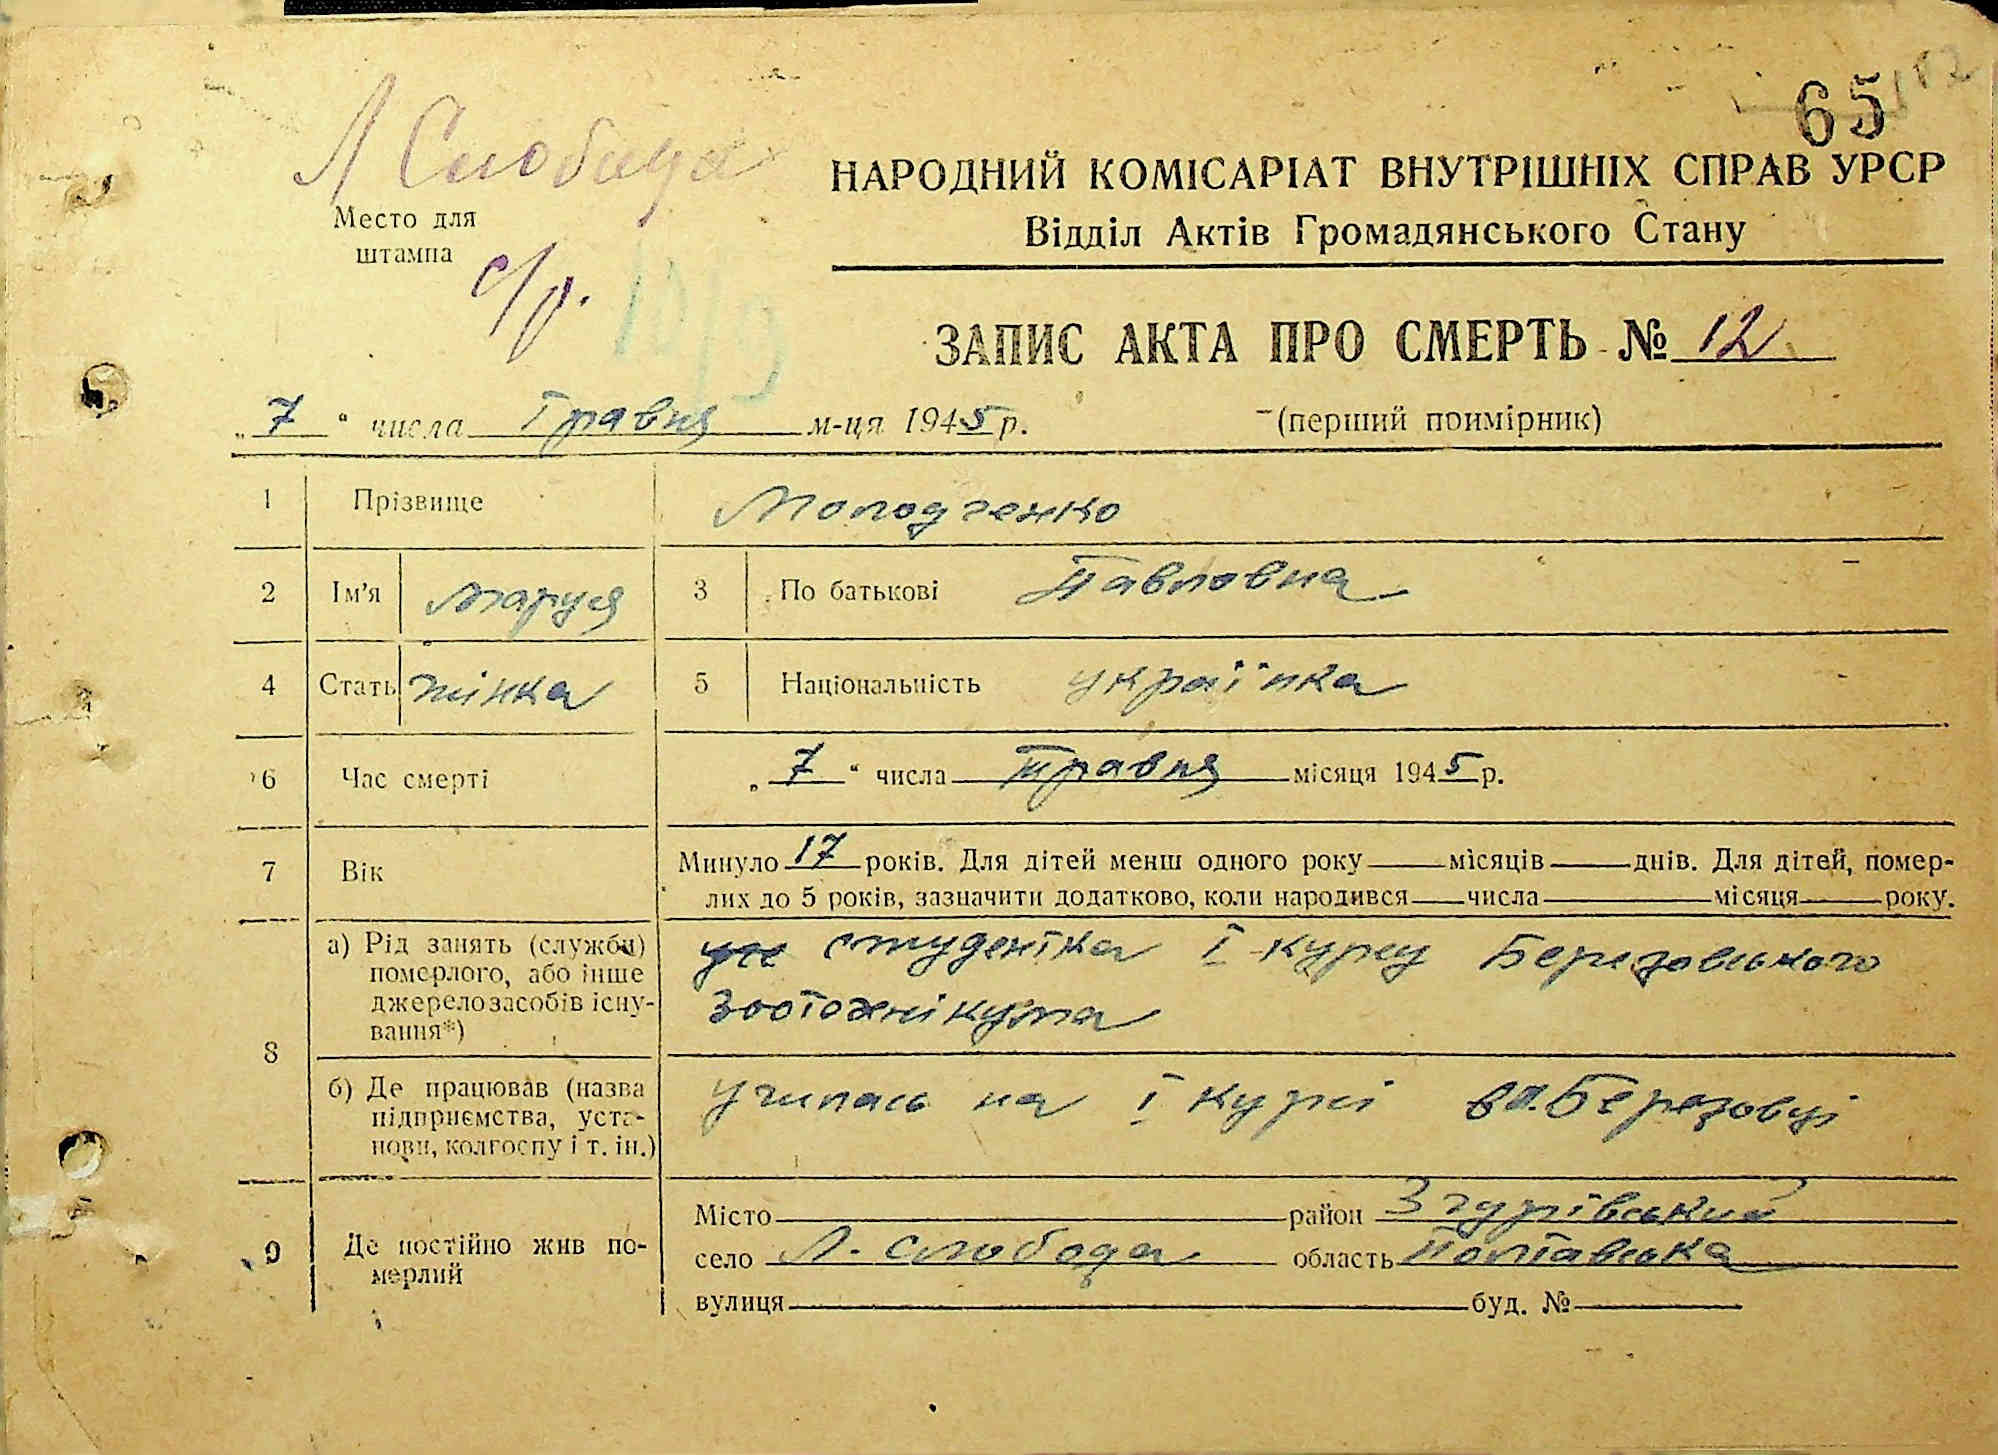 65
Л Слобода
НАРОДНИЙ КОМІСАРІАТ ВНУТРІШНІХ СПРАВ УРСР
Место для
штампа
с/р.
Відділ Актів Громадянського Стану
ЗАПИС АКТА ПРО СМЕРТЬ № 12
„7“ числа Травня м-ця 1945 р. (перший примірник)
1 Прізвище Молодченко
2 Ім'я Маруся 3 По батькові Павловна
4 Стать жінка 5 Національність українка
6 Час смерті „7“ числа травня місяця 1945 р.
7 Вік Минуло 17 років. Для дітей менш одного року ___ місяців ___ днів. Для дітей, помер-
лих до 5 років, зазначити додатково, коли народився ___ числа ___ місяця ___ року.
8 а) Рід занять (служби) померлого, або інше джерело засобів існу-вання*) студентка I курсу Березовського
зоотехнікума
б) Де працював (назва підприємства, уста-нови, колгоспу і т. ін.) училась на I курсі в с. Березовці
9 Де постійно жив по-мерлий Місто ___ район Згурівський
село Л. Слобода область Полтавська
вулиця ___ буд. № ___